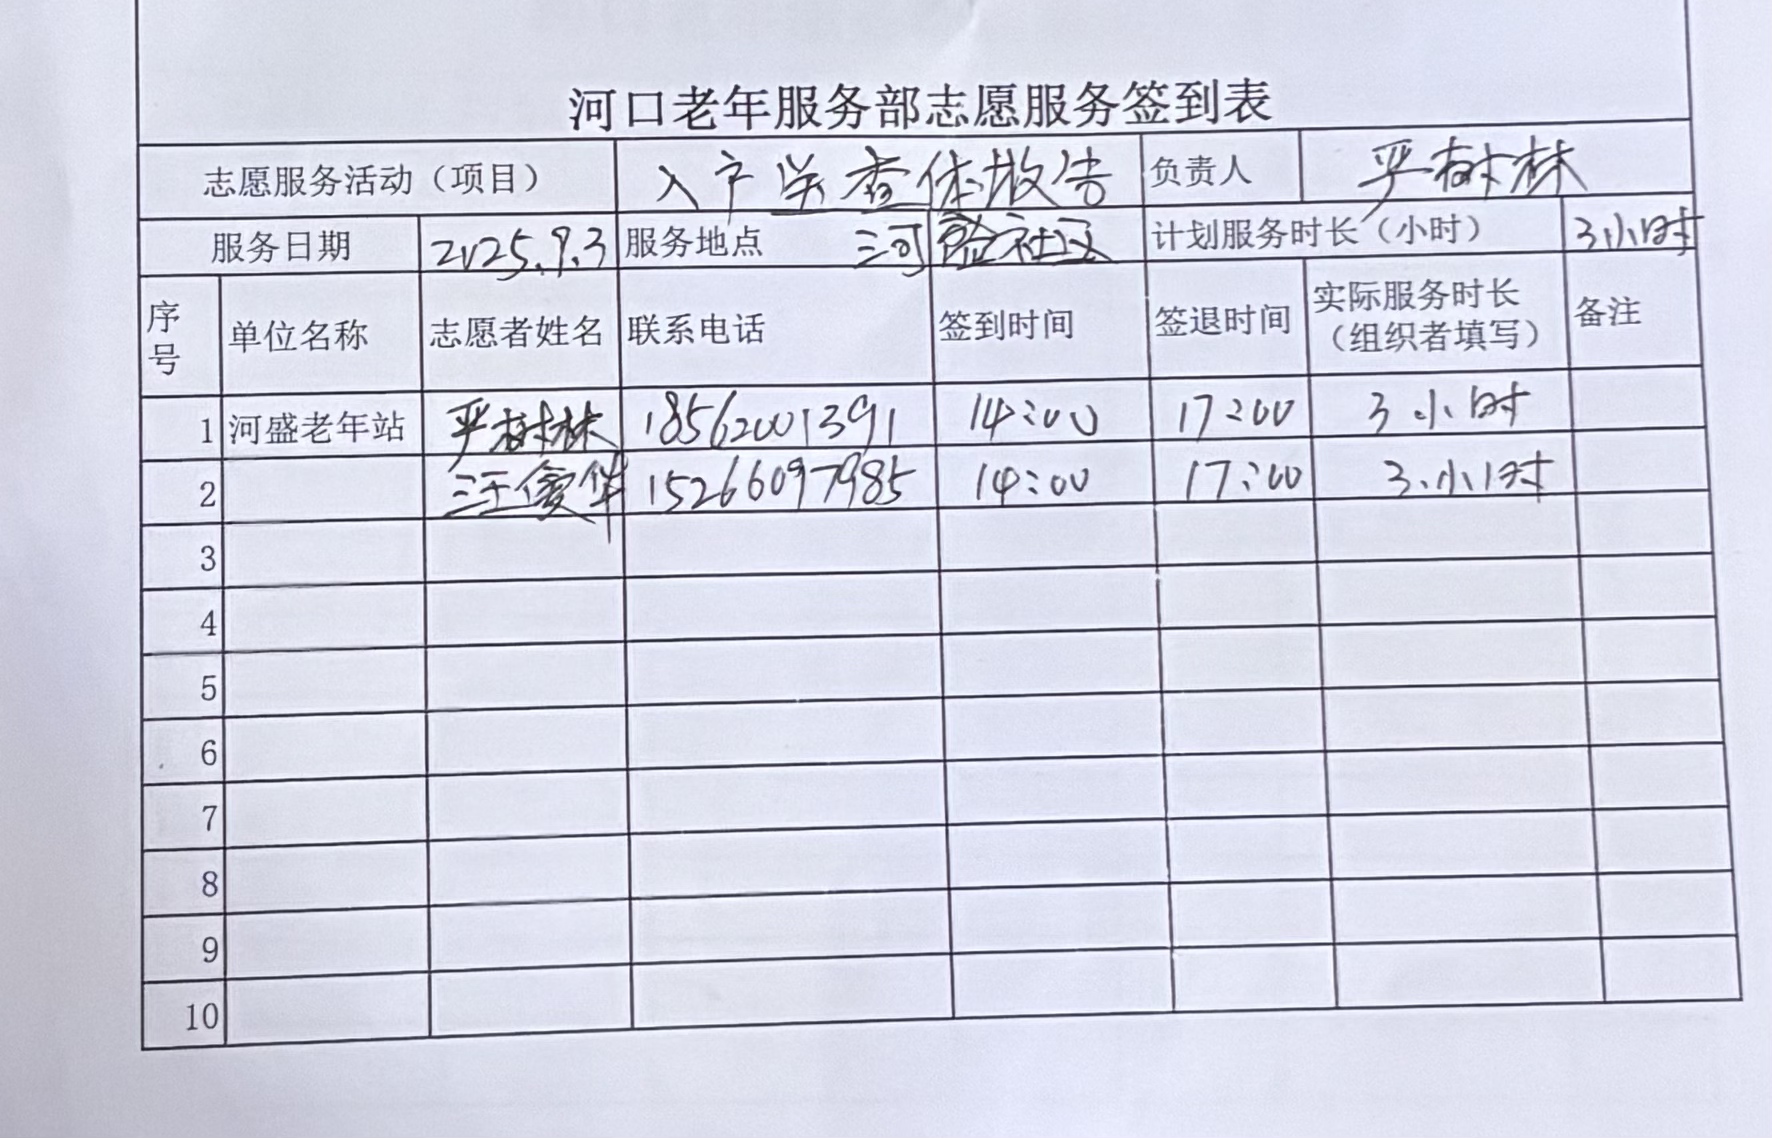 河口老年服务部志愿服务签到表
志愿服务活动（项目） 入户送查体报告 负责人 严树林
服务日期 2025.9.3 服务地点 河 社区 计划服务时长（小时） 3小时
序号 单位名称 志愿者姓名 联系电话 签到时间 签退时间 实际服务时长（组织者填写） 备注
1 河盛老年站 严树林 18562001391 14:00 17:00 3小时
2 汪 华 15266097985 14:00 17:00 3小时
3
4
5
6
7
8
9
10